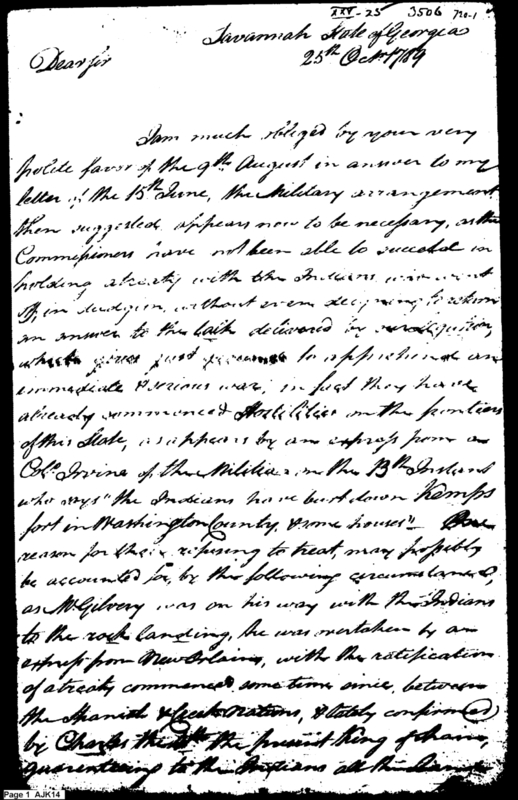 XXV-25 3506 720-1
Savannah State of Georgia
25th Octr. 1789
Dear Sir
I am much obliged by your very
polite favor of the 9th August in answer to my
letter of the 15th June, the Military arrangement
then suggested, appears now to be necessary, as the
Commissioners have not been able to succeed in
holding a treaty with the Indians, who went
off, in dudgeon, without even deigning to return
an answer to the talk delivered by
which gives just to apprehend an
immediate & serious war; in fact they have
already commenced Hostilities on the frontiers
of this State, as appears by an express from a
Colo. Irvine of the Militia on the 13th Instant
who says "the Indians have burt down Kemps
fort in Washington County, & some houses" One
reason for their refusing to treat, may possibly
be accounted for, by the following circumstance,
as McGilvery was on his way with the Indians
to the rock landing, he was overtaken by an
express from New Orleans, with the ratification
of a treaty commenced some time since, between
the Spanish & Creek Nations, & lately confirmed
by Charles the 4th the present King of Spain,
guarenteeing to the Indians all the Lands
Page 1 AJK14